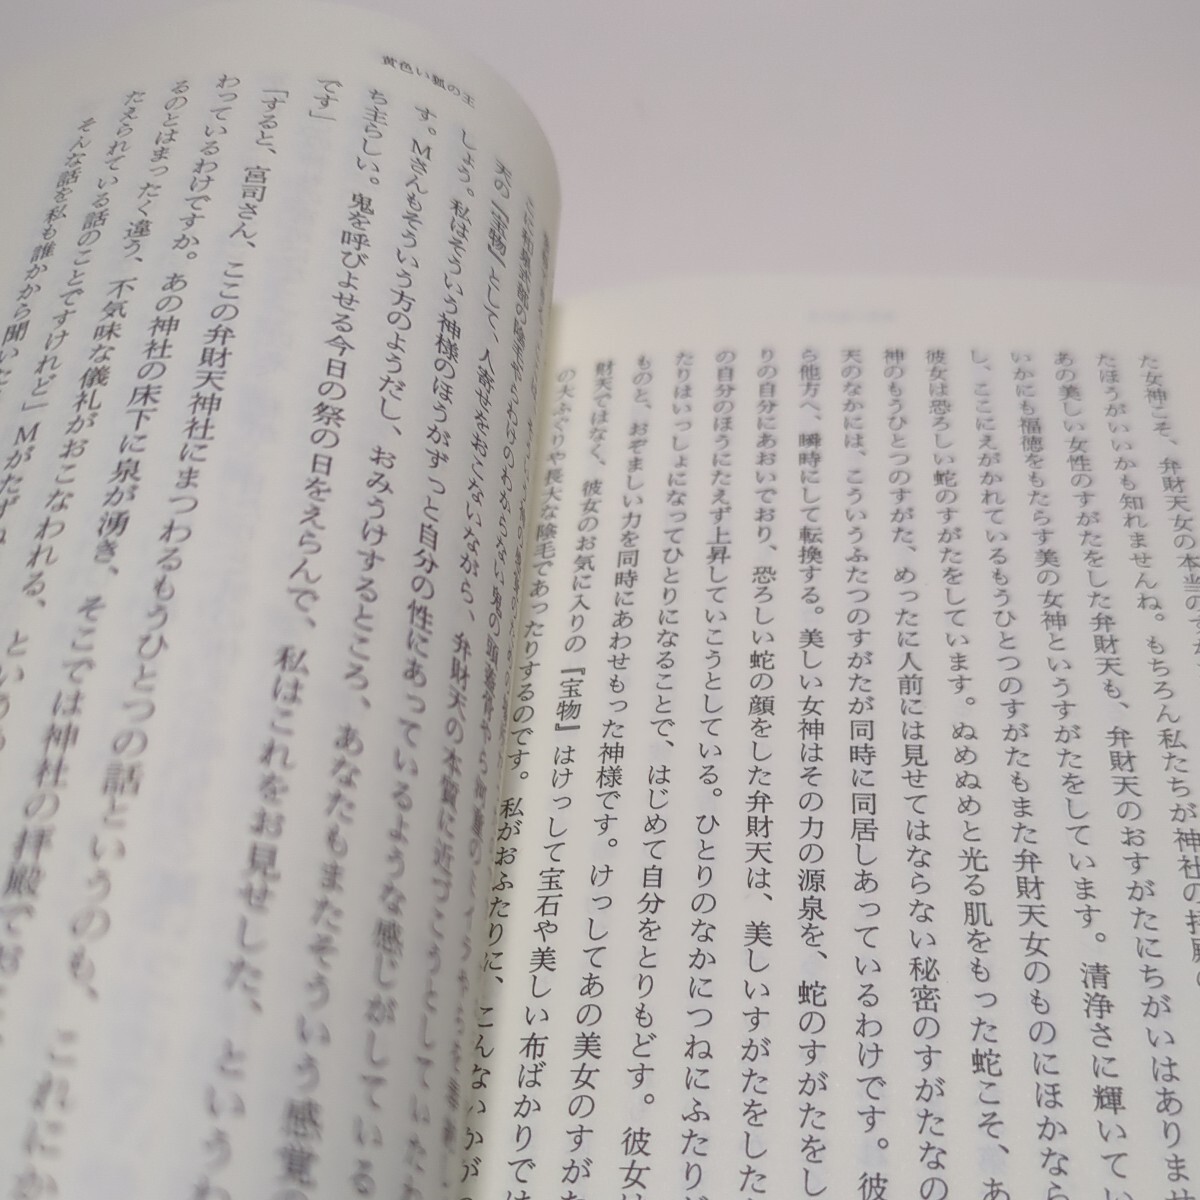 た女神こそ、弁財天女の本当のすが
たほうがいいかも知れませんね。もちろん私たちが神社の拝殿の
あの美しい女性のすがたをした弁財天も、弁財天のおすがたにちがいはありませ
いかにも福徳をもたらす美の女神というすがたをしています。清浄さに輝いてと
し、ここにえがかれているもうひとつのすがたもまた弁財天女のものにほかなら
彼女は恐ろしい蛇のすがたをしています。ぬめぬめと光る肌をもった蛇こそ、あ
神のもうひとつのすがた、めったに人前には見せてはならない秘密のすがたなの
天のなかには、こういうふたつのすがたが同時に同居しあっているわけです。彼
ら他方へ、瞬時にして転換する。美しい女神はその力の源泉を、蛇のすがたをし
りの自分にあおいでおり、恐ろしい蛇の顔をした弁財天は、美しいすがたをした
の自分のほうにたえず上昇していこうとしている。ひとりのなかにつねにふたり
たりはいっしょになってひとりになることで、はじめて自分をとりもどす。彼女は
ものと、おぞましい力を同時にあわせもった神様です。けっしてあの美女のすがた
財天ではなく、彼女のお気に入りの『宝物』はけっして宝石や美しい布ばかりでは
の大ふぐりや長大な陰毛であったりするのです。私がおふたりに、こんないかが
黄色い狐の王
天の『宝物』として、人寄せをおこないながら、弁財天の本質に近づこうとしていた
しょう。私はそういう神様のほうがずっと自分の性にあっているような感じがしている
す。Mさんもそういう方のようだし、おみうけするところ、あなたもまたそういう感覚の
ち主らしい。鬼を呼びよせる今日の祭の日をえらんで、私はこれをお見せした、というわ
です」
「すると、宮司さん、ここの弁財天神社にまつわるもうひとつの話というのも、これにか
わっているわけですか。あの神社の床下に泉が湧き、そこでは神社の拝殿でおこ
るのとはまったく違う、不気味な儀礼がおこなわれる、という
たえられている話のことですけれど」Mがたずね
そんな話を私も誰かから聞いた